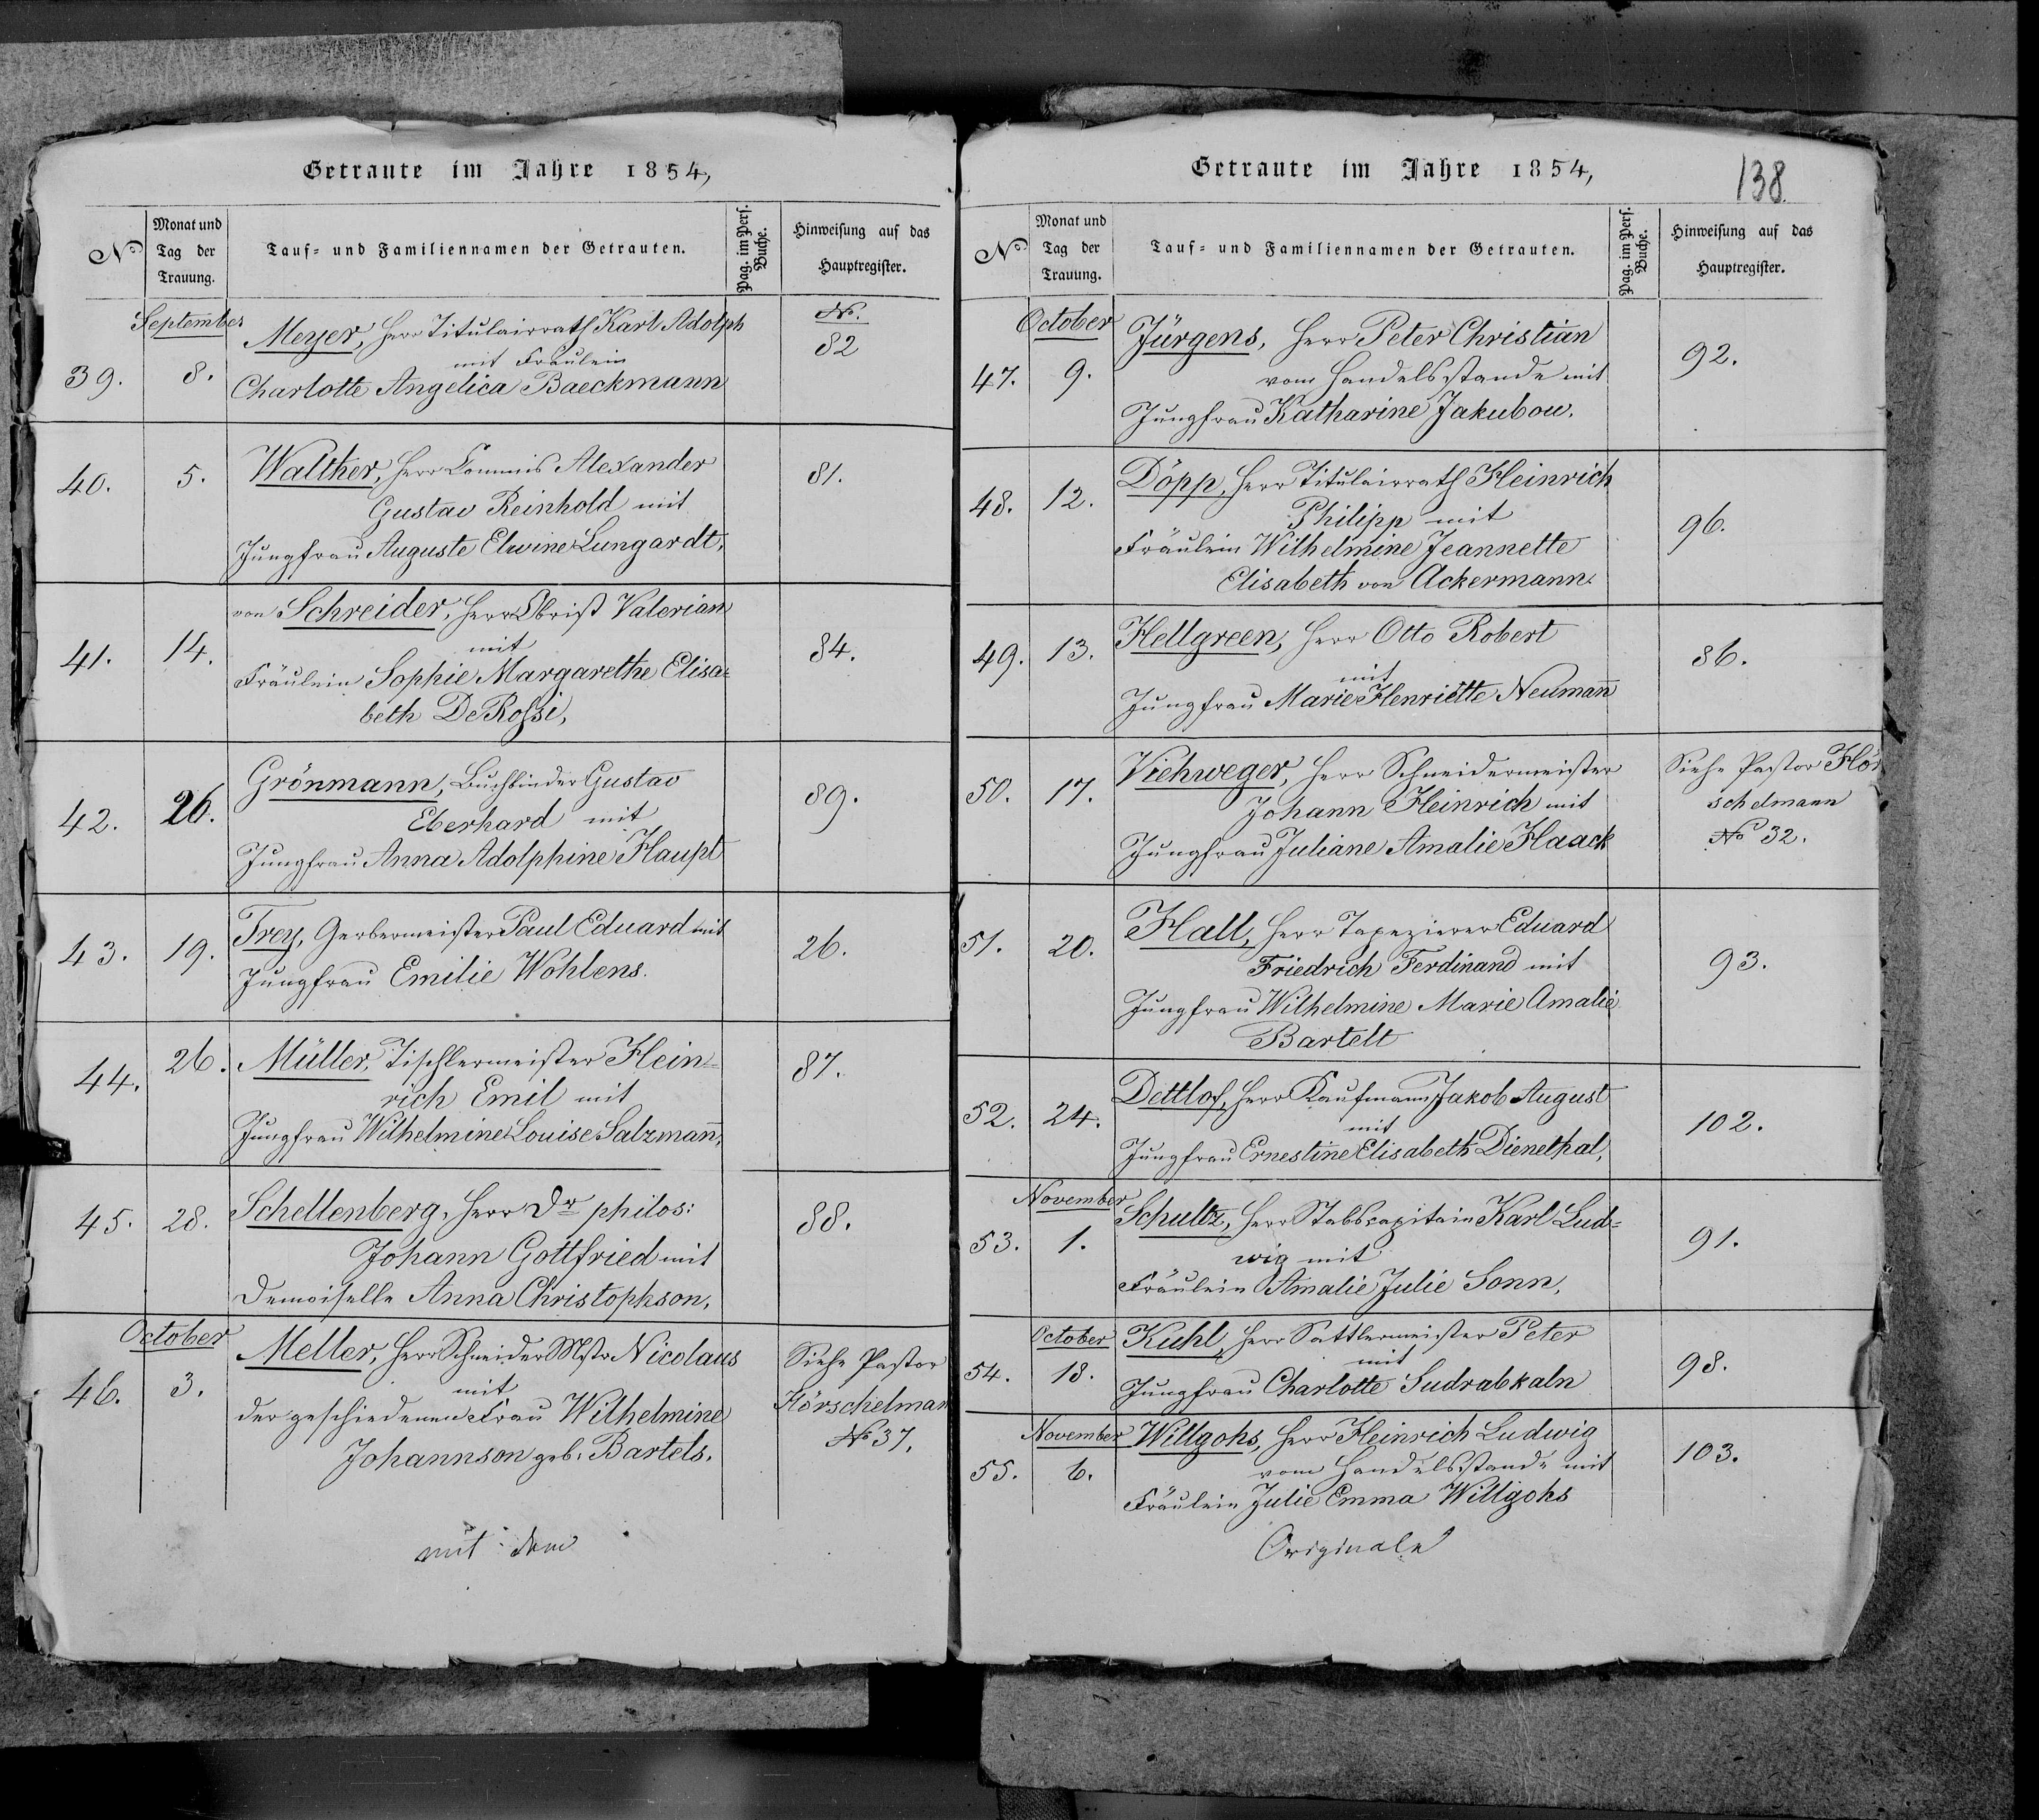 Getraute im Jahre 1854,
No
Monat und Tag der Trauung.
Tauf- und Familiennamen der Getrauten.
Pag. im Pers. Buche.
Hinweisung auf das Hauptregister.
September
Meyer, Herr Titulairrath Karl Adolph
No.
mit Fräulein
82
39. 8.
Charlotte Angelica Baeckmann
40. 5.
Walther, Herr Commis Alexander
81.
Gustav Reinhold mit
Jungfrau Auguste Elwine Lungardt,
von Schreider, Herr Obrist Valerian
41. 14.
mit
84.
Fräulein Sophie Margarethe Elisa-
beth De Rossi,
42. 26.
Grönmann, Buchbinder Gustav
89.
Eberhard mit
Jungfrau Anna Adolphine Haupt
43. 19.
Trey, Gerbermeister Paul Eduard mit
26.
Jungfrau Emilie Wohlens.
44. 26.
Müller, Tischlermeister Hein-
87.
rich Emil mit
Jungfrau Wilhelmine Louise Salzmañ,
45. 28.
Schellenberg, Herr Dr philos:
88.
Johann Gottfried mit
Demoiselle Anna Christophson,
October
46. 3.
Meller, Herr Schneider Mstr Nicolaus
Siehe Pastor
mit
Hörschelman
der geschiedenen Frau Wilhelmine
No 37,
Johannson geb. Bartels.
mit dem
Getraute im Jahre 1854,
138.
No
Monat und Tag der Trauung.
Tauf- und Familiennamen der Getrauten.
Pag. im Pers. Buche.
Hinweisung auf das Hauptregister.
October
47. 9.
Jürgens, Herr Peter Christian
92.
vom Handelsstande mit
Jungfrau Katharine Jakubow.
48. 12.
Döpp, Herr Titulairrath Heinrich
96.
Philipp mit
Fräulein Wilhelmine Jeannette
Elisabeth von Ackermann.
49. 13.
Hellgreen, Herr Otto Robert
86.
mit
Jungfrau Marie Henriette Neumañ
50. 17.
Viehweger, Herr Schneidermeister
Siehe Pastor Hör
Johann Heinrich mit
schelmann
Jungfrau Juliane Amalie Haack
No 32.
51. 20.
Hall, Herr Tapezierer Eduard
93.
Friedrich Ferdinand mit
Jungfrau Wilhelmine Marie Amalie
Bartelt
52. 24.
Dettlof, Herr Kaufmann Jakob August
102.
mit
Jungfrau Ernestine Elisabeth Dienethal,
November
53. 1.
Schultz, Herr Stabscapitain Karl Lud-
91.
wig mit
Fräulein Amalie Julie Sonn,
October
54. 18.
Kuhl, Herr Sattlermeister Peter
98.
mit
Jungfrau Charlotte Sudrabkaln
November
55. 6.
Willgohs, Herr Heinrich Ludwig
103.
vom Handelsstande mit
Fräulein Julie Emma Willgohs
Originale